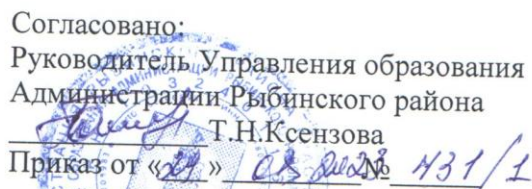 Согласовано:
Руководитель Управления образования
Администрации Рыбинского района
____________Т.Н.Ксензова
Приказ от «29» 08 2023 № 431/1